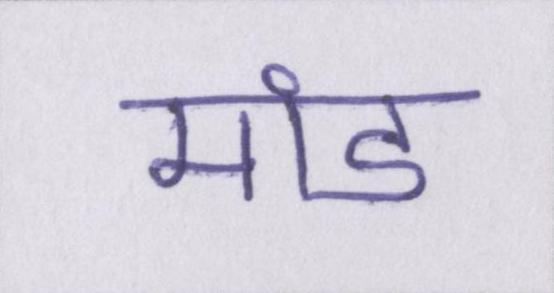 मांड